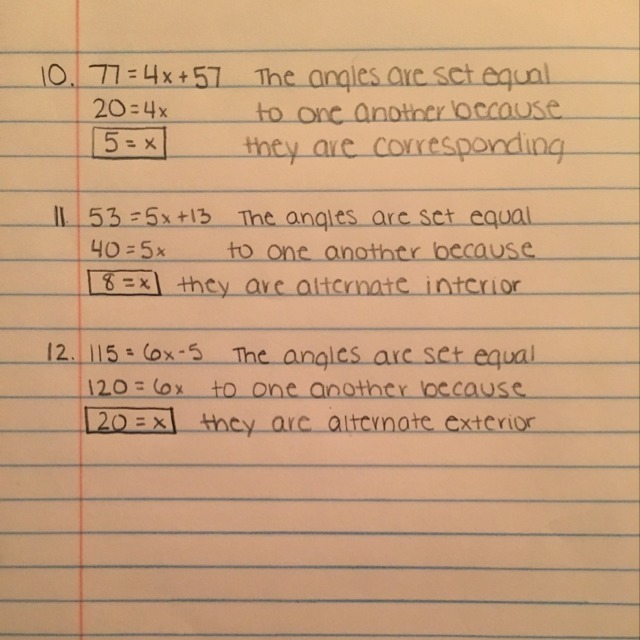 10. 77 = 4x + 57 The angles are set equal
20 = 4x to one another because
5 = x they are corresponding
11. 53 = 5x + 13 The angles are set equal
40 = 5x to one another because
8 = x they are alternate interior
12. 115 = 6x - 5 The angles are set equal
120 = 6x to one another because
20 = x they are alternate exterior